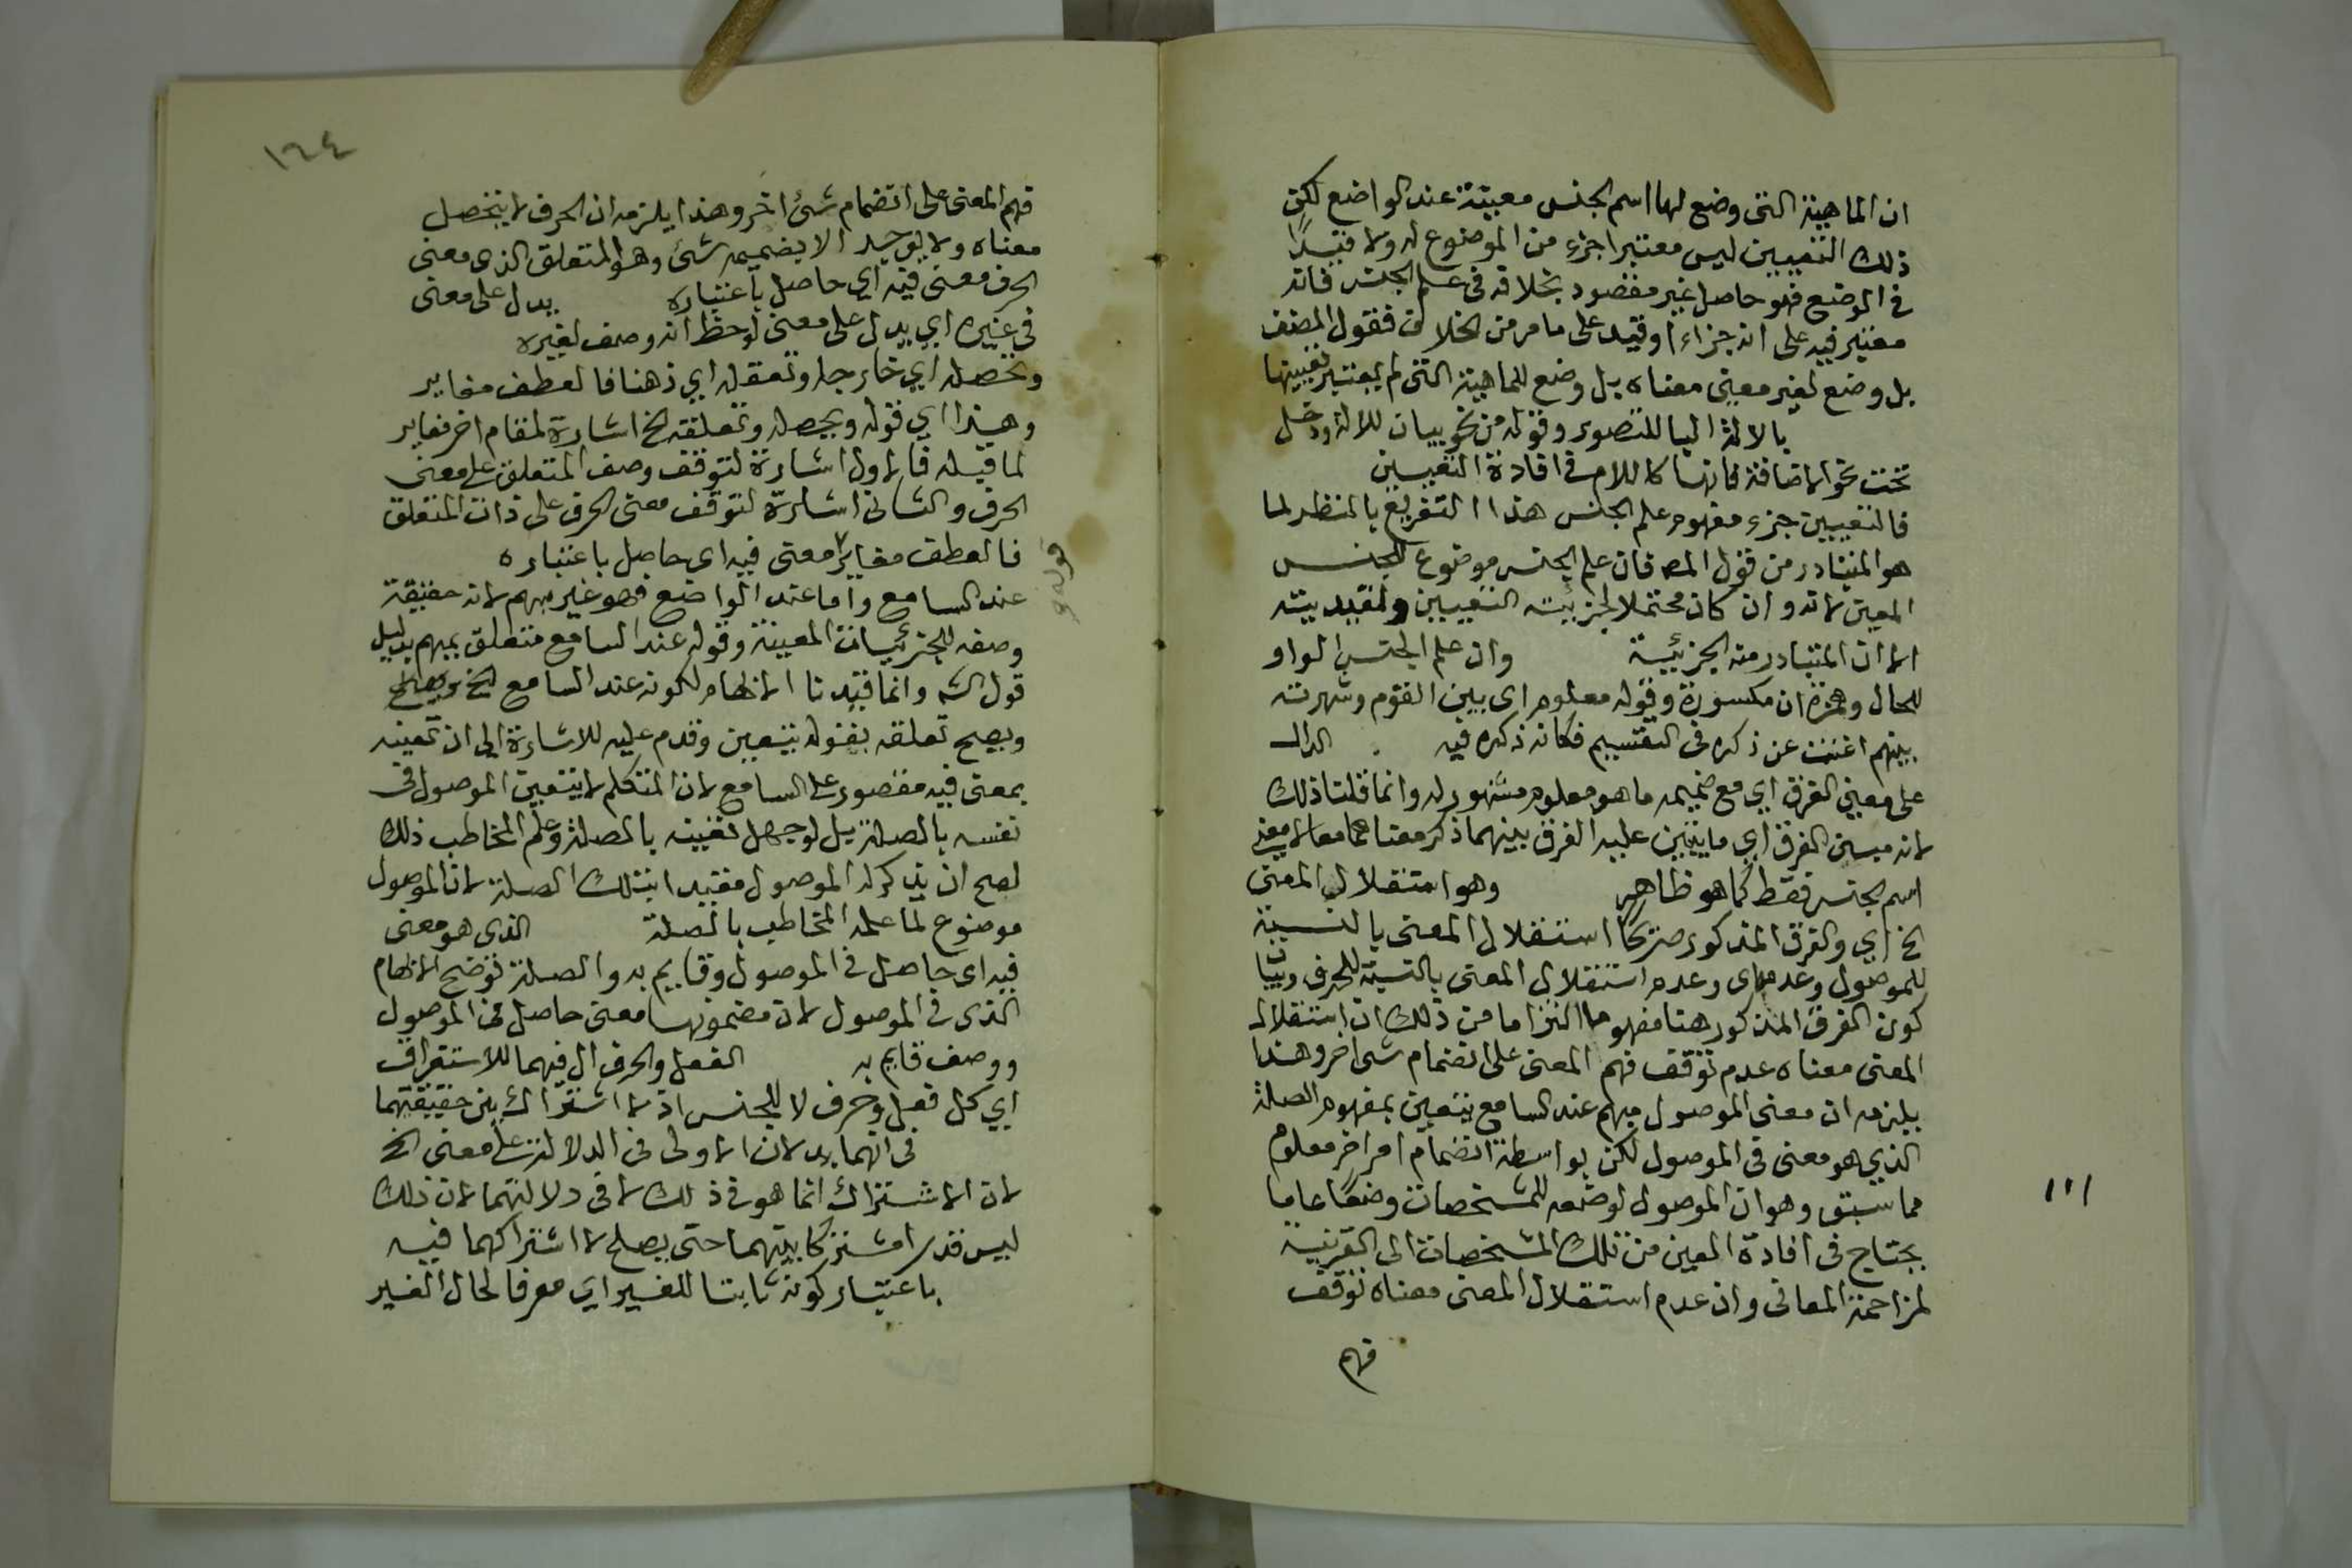 ان الماهية التى وضع لها اسم الجنس معينة عند الواضع لكن
ذلك التعيين ليس معتبرا جزء من الموضوع له ولا قيدًا
فى الوضع فهو حاصل غير مقصود بخلافه فى علم الجنس فانه
معتبر فيه على انه جزاء اوقيد على ما مر من الخلاف فقول المصنف
بل وضع لغير معين معناه بل وضع للماهية التى لم يعتبر تعيينها
بالالة البا للتصوير وقوله من نحو بيان للالة ودخل
تحت نحو الاضافة فانها كاللام فى افادة التعيين
فالتعيين جزء مفهوم علم الجنس هذا التفريع بالنظر لما
هو المتبادر من قول المصـ فان علم الجنس موضوع للجنس
المعين لانه وان كان محتملا لجزئية التعيين ولقيديته
الا ان المتبادر منه الجزئية وان علم الجنس الواو
للحال وهمزة ان مكسورة وقوله معلوم اى بين القوم وشهرته
بينهم اغنت عن ذكره فى التقسيم فكانه ذكره فيه الدال
على معنى الفرق اي مع ضميمه ما هو معلوم مشهور له وانما قلنا ذلك
لانه مبين الفرق اي ما ينبني عليه الفرق بينهما ذكر معناهما معا لا معنى
اسم الجنس فقط كما هو ظاهر وهو استقلال المعنى
الخ اي والفرق المذكور صريحًا استقلال المعنى بالنسبة
للموصول وعدمه اى وعدم استقلال المعنى بالنسبة للحرف
كون الفرق المذكور هنا مفهوما التزاما من ذلك ان استقلال
المعنى معناه عدم توقف فهم المعنى على انضمام شى اخر وهذا
يلزمه ان معنى الموصول مبهم عند السامع يتعين بمفهوم الصلة
الذي هو معنى فى الموصول لكن بواسطة انضمام امر اخر معلوم
مما سبق وهو ان الموصول لوضعه للمشخصات وضعًا عاما
يحتاج فى افادة المعين من تلك المشخصات الى القرينة
لمزاحمة المعانى وان عدم استقلال المعنى معناه توقف
فهم
١١١
١٦٤
فهم المعنى على انضمام شئ اخر وهذا يلزمه ان الحرف لا يتحصل
معناه ولا يوجد الا بضميمه شئ وهو المتعلق الذى معنى
الحرف معنى فيه اي حاصل باعتباره يدل على معنى
فى غيره اي يدل على معنى لوحظ انه وصف لغيره
وتحصله اي خارجا وتعقله اي ذهنا فالعطف مغاير
وهذا اي قوله ويحصله وتعلقه الخ اشارة لمقام اخر مغاير
لما قبله فالاول اشارة لتوقف وصف المتعلق على معنى
الحرف والثانى اشارة لتوقف معنى الحرف على ذات المتعلق
فالعطف مغاير معنى فيه اى حاصل باعتباره
قوله و
عند السامع واما عند الواضع فهو غير مبهم لانه حقيقة
وصفه للجزئيات المعينة وقوله عند السامع متعلق بمبهم بدليل
قول الشـ وانما قيدنا الابهام لكونه عند السامع الخ
ويصح تعلقه بقوله يتعين وقدم عليه للاشارة الى ان تعينه
بمعنى فيه مقصور على السامع لان المتكلم لا يتعين الموصول فى
نفسه بالصلة بل لو جهل تعينه بالصلة وعلم المخاطب ذلك
لصح ان يذكر له الموصول مقيدا بتلك الصلة لان الموصول
موضوع لما علمه المخاطب بالصلة الذى هو معنى
فيه اى حاصل فى الموصول وقايم به والصلة توضح الابهام
الذى فى الموصول لان مضمونها معنى حاصل فى الموصول
ووصف قايم به الفعل والحرف ال فيهما للاستغراق
اي كل فعل وحرف لا للجنس اذ لا اشتراك بين حقيقتيهما
فى انهما يد لان الاولى فى الدلالة على معنى الخ
لان الاشتراك انما هو فى ذلك لا فى دلالتهما لان ذلك
ليس قدرا مشتركا بينهما حتى يصلح لاشتراكهما فيه
باعتبار كونه ثابتا للغير اي معرفا لحال الغير